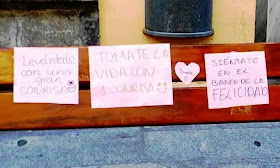 Levántate
con una
gran
SONRISA
TÓMATE LA
VIDA CON
1 SONRISA
SIÉNTATE
EN EL
BANCO DE LA
FELICIDAD